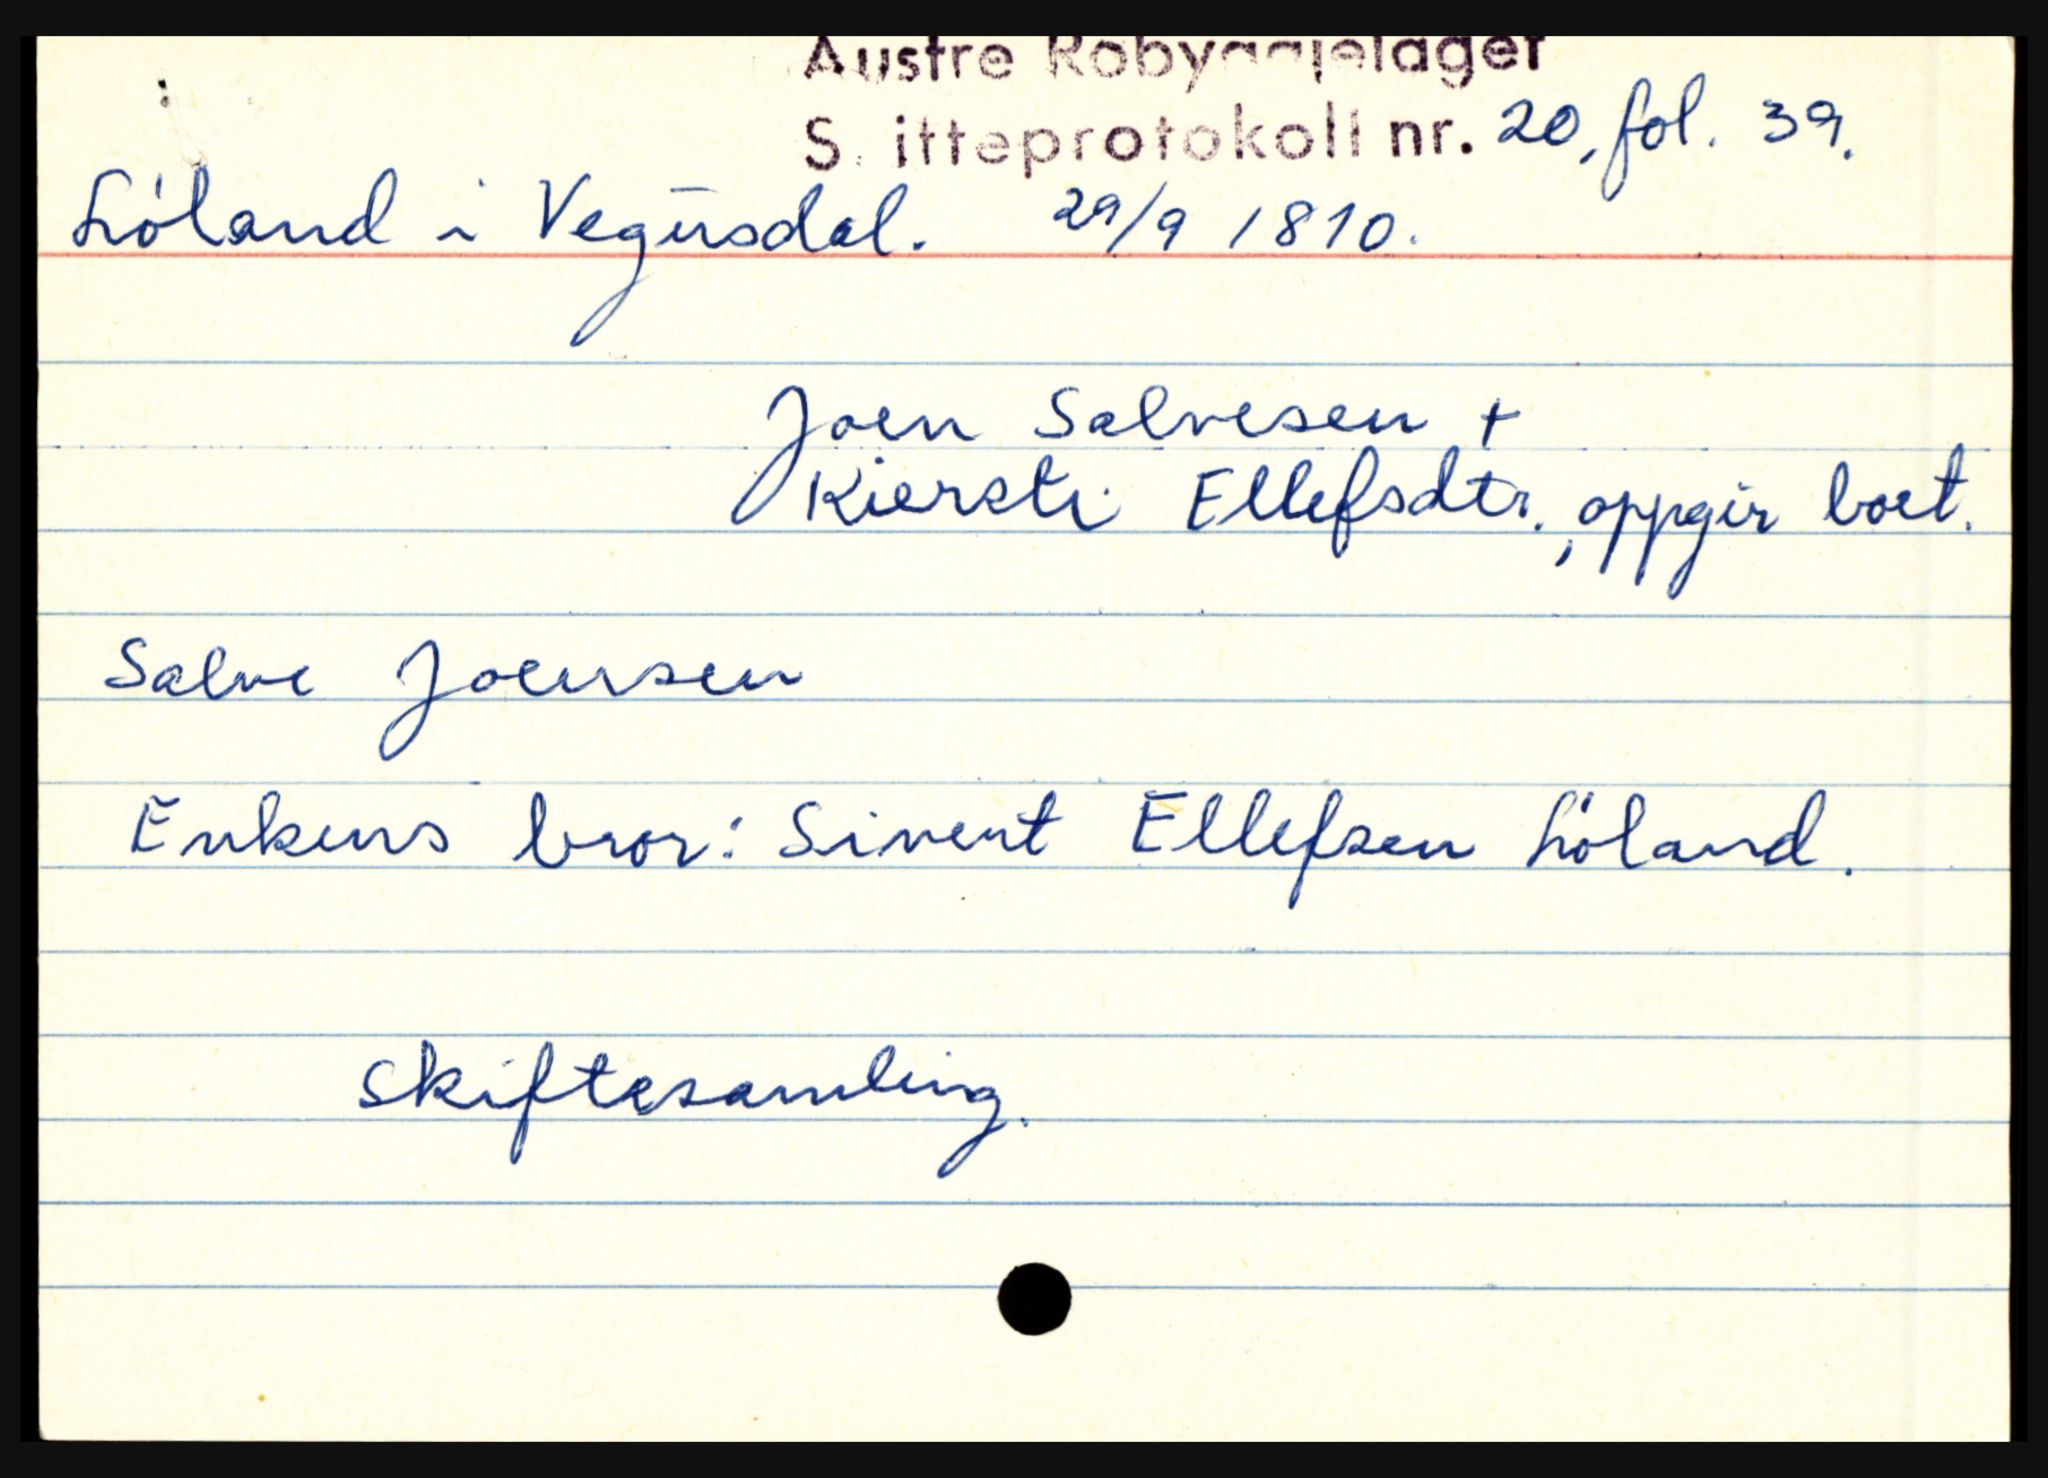 Austre Robyggjelaget
S. itteprotokoll nr. 20, fol. 39.
Löland i Vegusdal. 29/9 1810.
Joen Salvesen +
Kiersti Ellefsdtr., oppgir boet.
Salve Joensen
Enkens bror: Sivert Ellefsen Löland.
Skiftesamling.